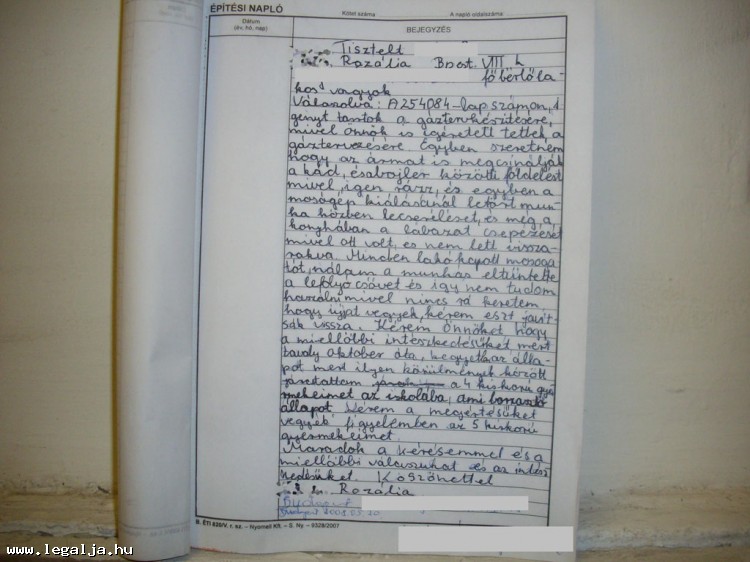 ÉPÍTÉSI NAPLÓ
Kötet száma
A napló oldalszáma
Dátum
(év, hó, nap)
BEJEGYZÉS
Tisztelt
Rozália Bpest. VIII k
főbérlőla-
kos vagyok
Válaszolva: A254084-lapszámon, i
gényt tartok a gáztervkészítésére,
mivel Önnök is igéretett tettek a
gáztervezésére Egyben szeretném
hogy az áramat is megcsinálják
a kád, ésabojler közötti földelést
mivel, igen rázz, és egyben a
mosógép kiálásánál letört mun-
ka közben lecserélését, és még a,
konyhában a lábazat csepezését
mivel ott volt, es nem lett vissza-
rakva. Minden lakó kapott mosoga
tót, nálam a munkás eltüntette
a lefolyócsövet és így nem tudom
használni mivel nincs rá keretem,
hogy újjat vegyek, kérem eszt javít-
sák vissza. Kérem Önnöket hogy
a miellőbbi intészkedésüket mert
tavaly Október óta, kegyetlen az álla-
pot mert ilyen körülmények között
járattattam a 4 kiskorú gyer
mekeimet az iskolába, ami borzasztó
állapot Kérem a megértésüket
vegyék figyelemben az 5 kiskorú
gyermekeimet.
Maradok a kérésemmel és a
miellőbbi válaszukat és az intész
kedésüket Köszönettel
Rozália
B. ÉTI 820/V. r. sz. – Nyomell Kft. – S. Ny. – 9328/2007
www.legalja.hu